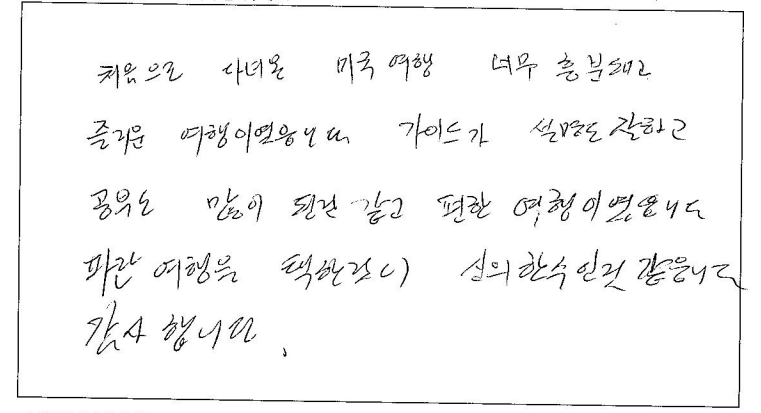 처음으로 다녀온 미국여행 너무 흥분돼고
즐거운 여행이였읍니다 가이드가 설명도 잘하고
공부도 많이 된것 같고 편한 여행이였읍니다
파란 여행을 택한것이 신의한수인것 같읍니다
감사합니다.